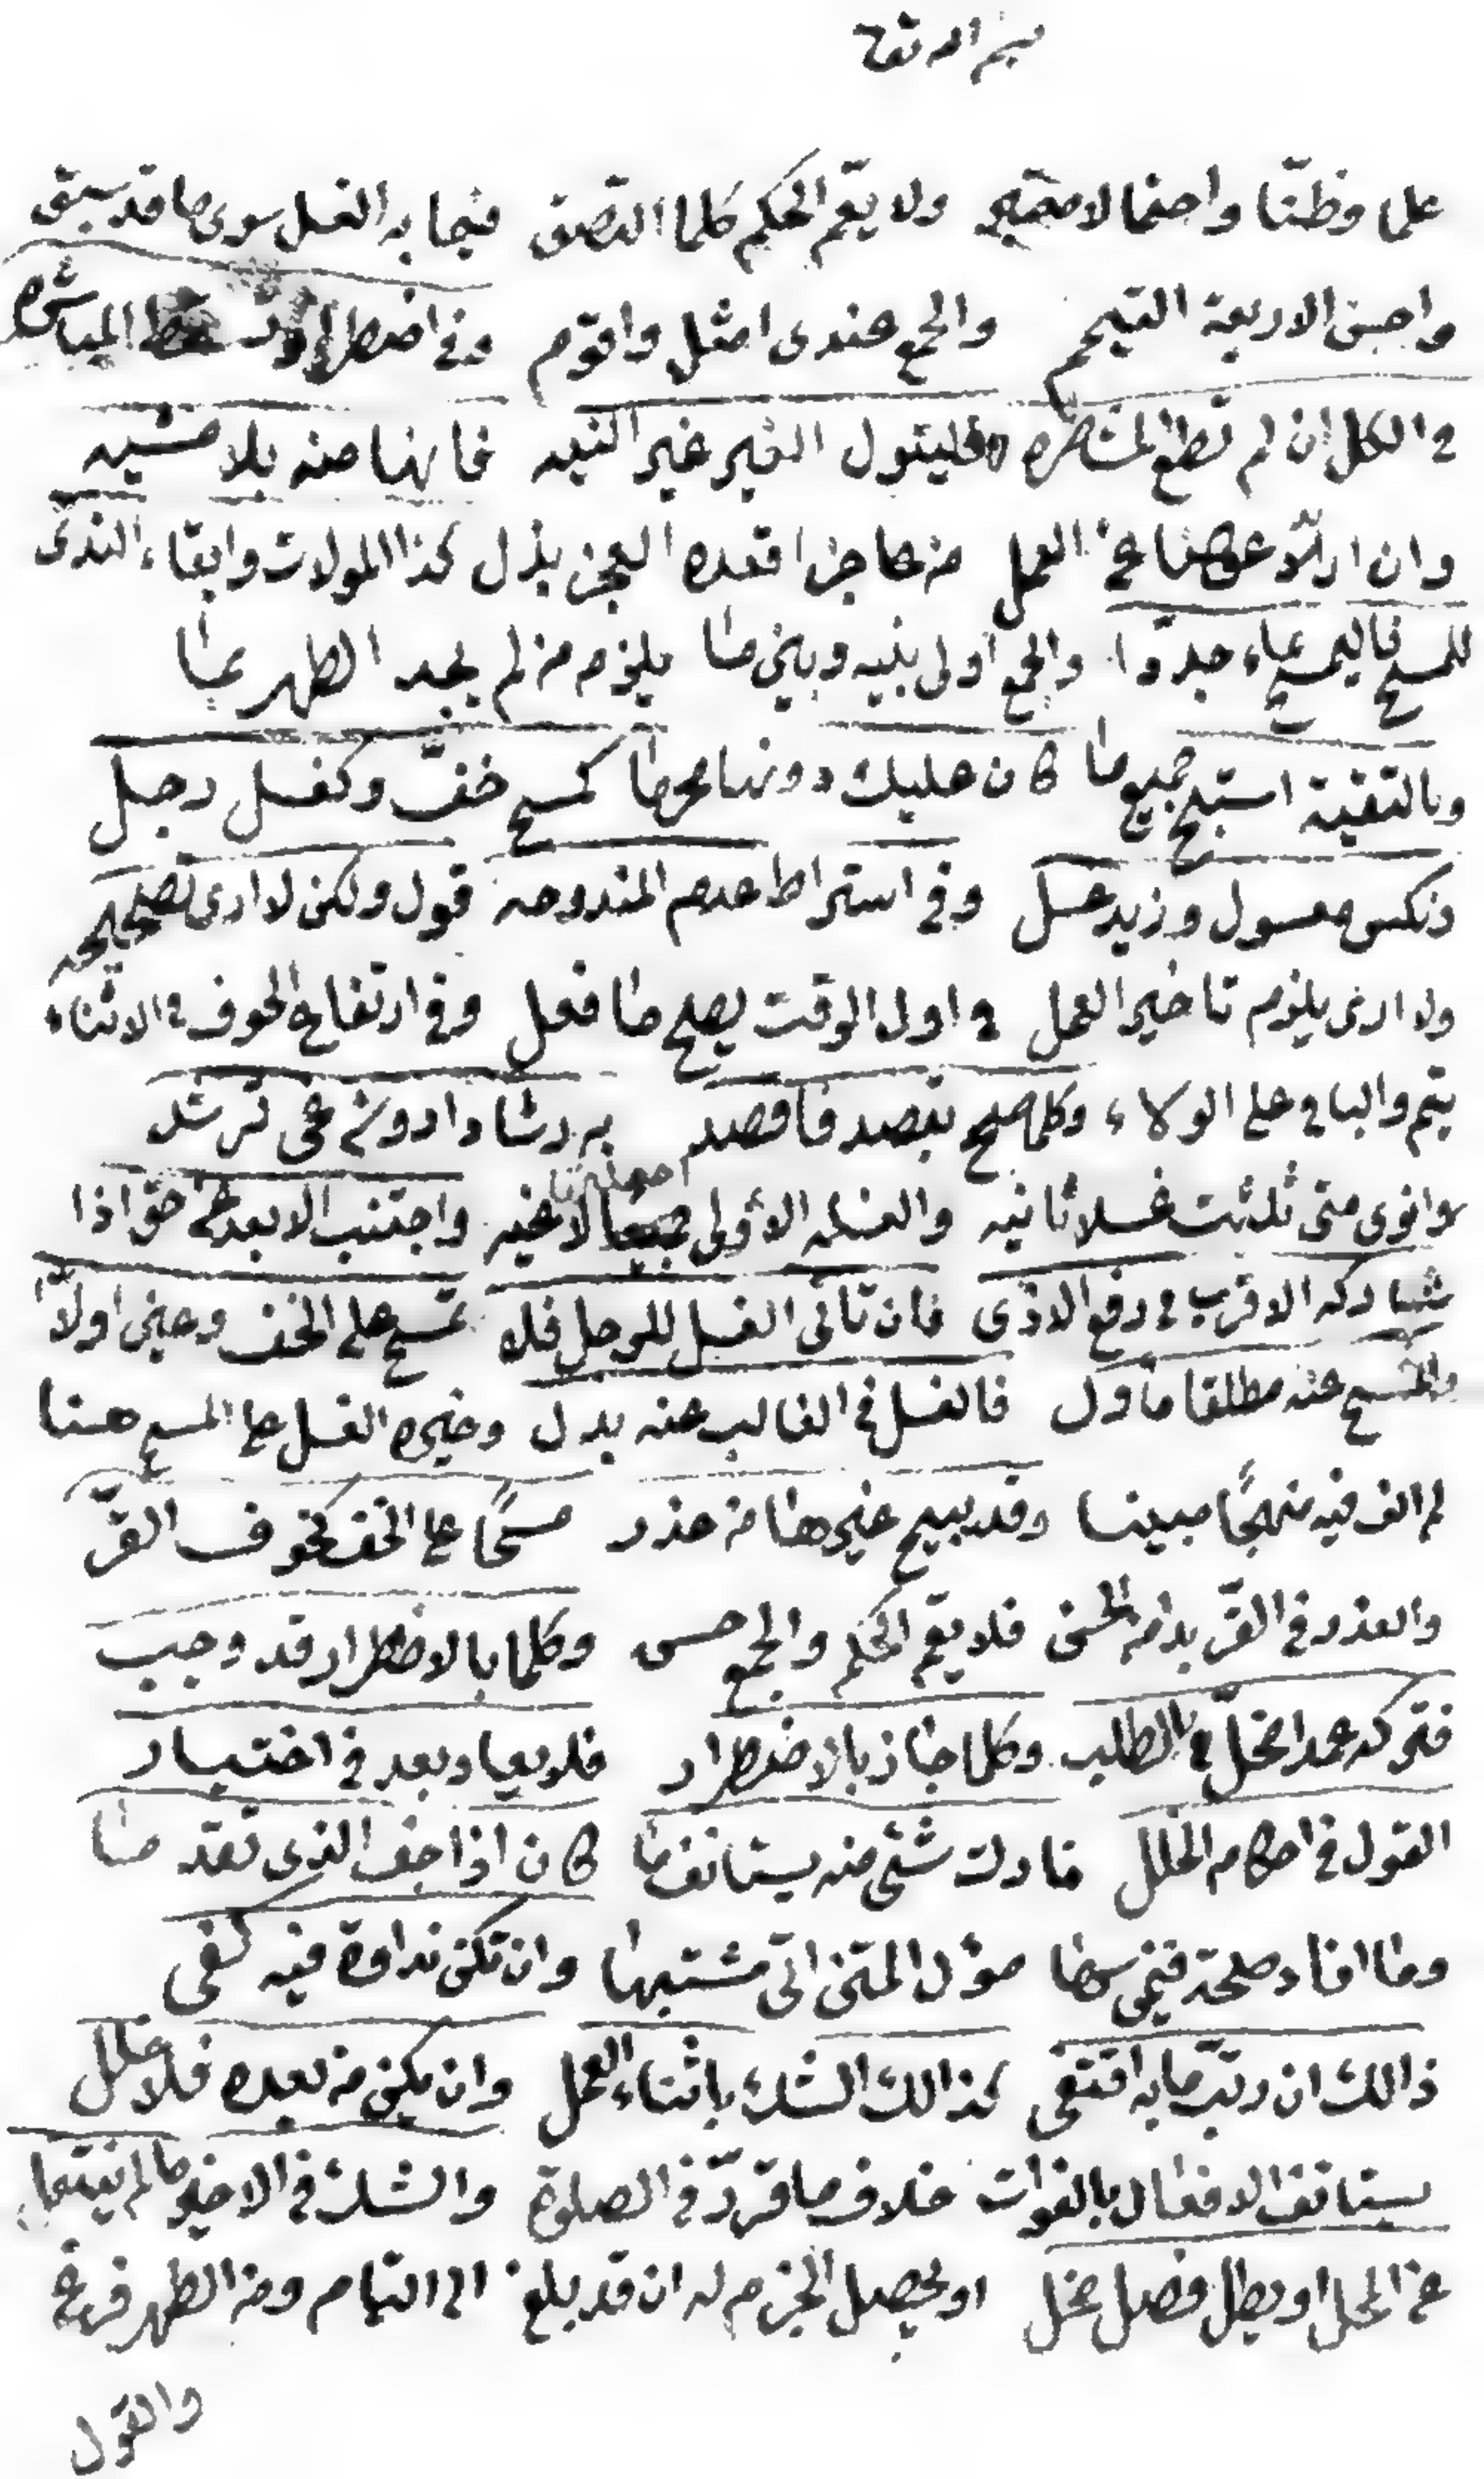 بسم الله تعالى
علما وظنّا واحتمالا ولا يعم الحكم كلما التصق فيما به الغسل سوى ما قد سبق
واحسن الاربعة التيمم والجمع عندى امثل واقوم وفي اضطرار حط المباشره
في الكل ان لم تطع فليتول الغير غير النيه فانها منه بلا مثنيه
وان عن العمل من عاجز اقعده العجز بذل كذا المولات وابقاء الندى
للمسح فاليمسح بماء جددا والجمع اولى بنيه وبين ما يلزم من لم يجد الطهر بما
وبالتقية استبح جميع ما كان عليك دونها محرما كمسح خفّ وكغسل رجل
ونكس مغسول وزيد غسل وفي اشتراط عدم المندوحه قول ولكن لا ارى تصحيحه
ولا ارى يلزم تاخير العمل في اول الوقت يصح ما فعل وفي ارتفاع الخوف في الاثناء
يتم والباقي على الولاء وكلما صح بقصد فاقصد به رشادا دون غي ترشد
وانوى متى ثلثت غسلا ثانيه والغسله الاولى لاغيه واجتنب الابعد حتى اذا
شاركه الاقرب في دفع الاذى فان تاتى الغسل للرجل فلا تمسح على الخف وعين اولا
والمسح عنه مطلقا ماول فالغسل في الغالب عنه بدل وخيره الغسل على المسح هنا
لم الف فيه منهجًا مبينا وقد يبيح غيرها من عذر مسحًا على الخف كخوف القرّ
والعذر في القرّ فلا يعم الحكم والجمع حسن وكلما بالاضطرار قد وجب
فتركه عمدا مخلّ في الطلب وكلما جاز بالاضطرار فلا يعاد بعد في اختيار
القول في احكام الخلل فارت شئ منه يستانف ما كان اذا جف الذى تقد ما
وما افاد صحة فيمن سها مؤل المتن اتى مشتبها وان تكن نداوة فيه كفى
ذالك ان رتب ما به اقتفى كذالك الشك باثناء العمل وان يكن من بعده فلا خلل
يستانف الافعال بالفوات خلاف ما قرر في الصلوة والشك في الاخير ما لم
عن المحل او يطل فصل مخل او يحصل الجزم له ان قد بلغ الى التمام ومن الطهر فرغ
والقول